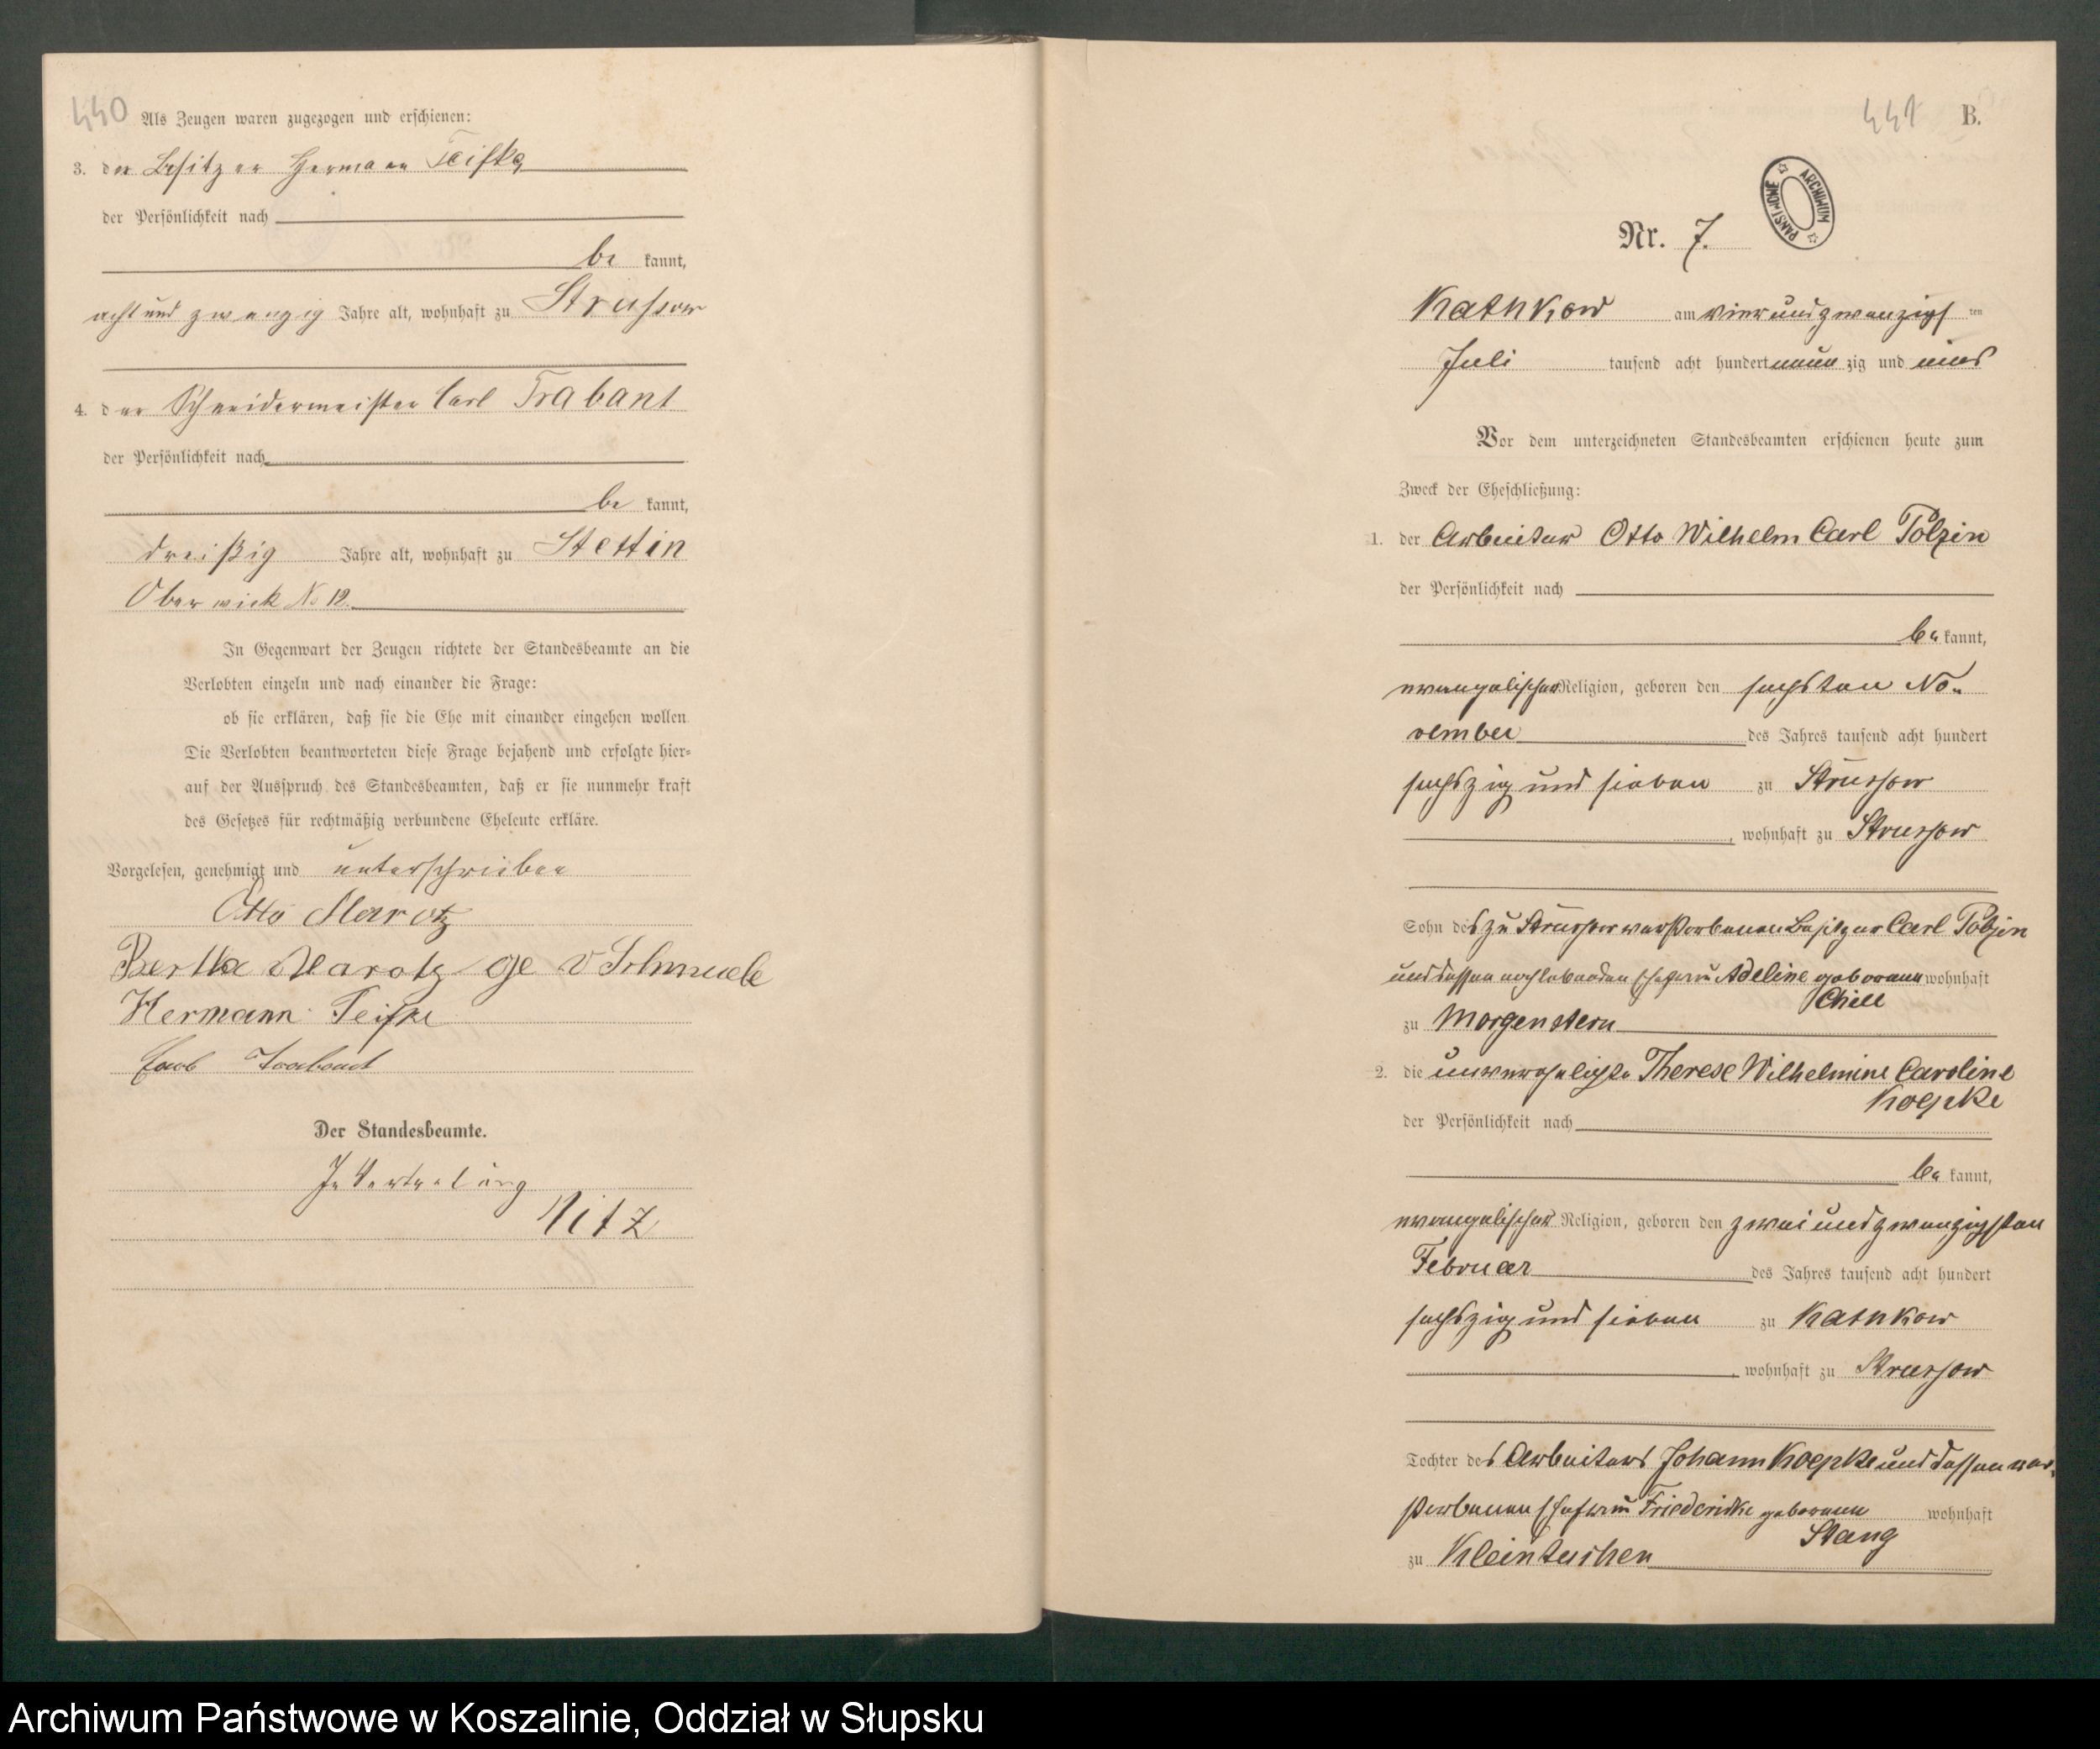 440
Als Zeugen waren zugezogen und erschienen:
3. der Besitzer Hermann Teifke
der Persönlichkeit nach
be kannt,
acht und zwanzig Jahre alt, wohnhaft zu Strussow
4. der Schneidermeister Carl Trabant
der Persönlichkeit nach
be kannt,
dreißig Jahre alt, wohnhaft zu Stettin
Oberwiek No 12.
In Gegenwart der Zeugen richtete der Standesbeamte an die
Verlobten einzeln und nach einander die Frage:
ob sie erklären, daß sie die Ehe mit einander eingehen wollen.
Die Verlobten beantworteten diese Frage bejahend und erfolgte hier-
auf der Ausspruch des Standesbeamten, daß er sie nunmehr kraft
des Gesetzes für rechtmäßig verbundene Eheleute erkläre.
Vorgelesen, genehmigt und unterschrieben
Otto Marotz
Bertha Marotz ge v Schmude
Hermann Teifke
Carl Trabant
Der Standesbeamte.
In Vertretung
Nitz
441 B.
ARCHIWUM PAŃSTWOWE
Nr. 7.
Kathkow am vier und zwanzigs ten
Juli tausend acht hundert neun zig und eins
Vor dem unterzeichneten Standesbeamten erschienen heute zum
Zweck der Eheschließung:
1. der Arbeiter Otto Wilhelm Carl Polzin
der Persönlichkeit nach
be kannt,
evangelischer Religion, geboren den sechsten No-
vember des Jahres tausend acht hundert
sechszig und sieben zu Strussow
, wohnhaft zu Strussow
Sohn des zu Strussow verstorbenen Besitzer Carl Polzin
und dessen noch lebenden Ehefrau Adeline geborene wohnhaft
zu Morgenstern
2. die unverehelichte Therese Wilhelmine Caroline
Koepke
der Persönlichkeit nach
be kannt,
evangelischer Religion, geboren den zwei und zwanzigsten
Februar des Jahres tausend acht hundert
sechszig und sieben zu Kathkow
, wohnhaft zu Strussow
Tochter des Arbeiters Johann Koepke und dessen ver-
storbenen Ehefrau Friederike geborene wohnhaft
Stang
zu Kleintuchen
Archiwum Państwowe w Koszalinie, Oddział w Słupsku